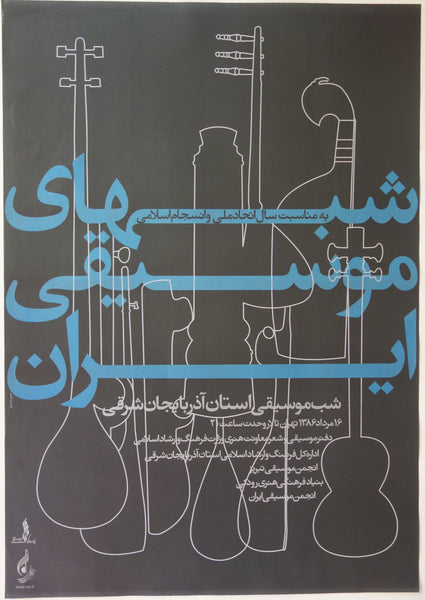 شبهای
به مناسبت سال اتحاد ملی و انسجام اسلامی
موسیقی
ایران
شب موسیقی استان آذربایجان شرقی
۱۶ مرداد ۱۳۸۶ تهران تالار وحدت ساعت ۲۱
دفتر موسیقی و شعر معاونت هنری وزارت فرهنگ و ارشاد اسلامی
اداره کل فرهنگ و ارشاد اسلامی استان آذربایجان شرقی
انجمن موسیقی تبریز
بنیاد فرهنگی هنری رودکی
انجمن موسیقی ایران